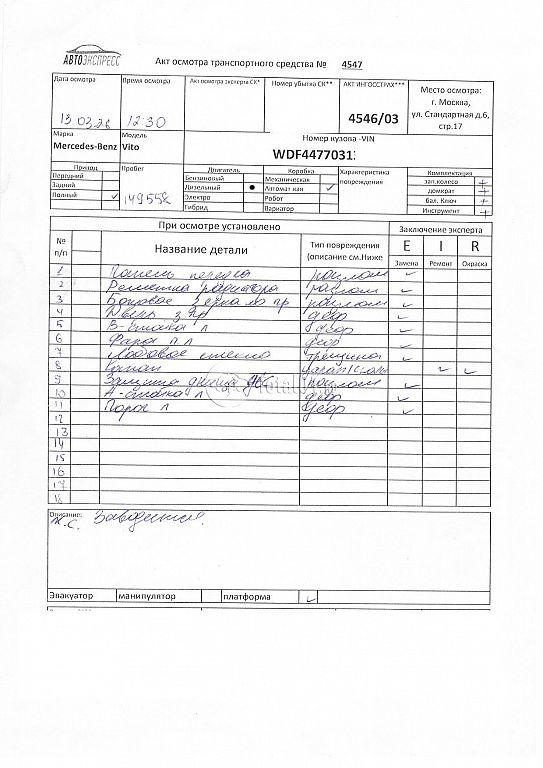 АВТОЭКСПРЕСС
Акт осмотра транспортного средства № 4547
Дата осмотра
Время осмотра
Акт осмотра эксперта СК*
Номер убытка СК**
АКТ ИНГОССТРАХ***
Место осмотра:
г. Москва,
ул. Стандартная д.6,
стр.17
13 03.26
12:30
4546/03
Марка
Модель
Номер кузова -VIN
Mercedes-Benz
Vito
WDF4477031
Привод
Пробег
Двигатель
Коробка
Характеристика повреждения
Комплектация
Передний
Бензиновый
Механическая
зап.колесо +
Задний
Дизельный ●
Автомат кая ✓
домкрат +
Полный ✓
149552
Электро
Робот
бал. Ключ +
Гибрид
Вариатор
Инструмент +
При осмотре установлено
Заключение эксперта
№ п/п
Название детали
Тип повреждения (описание см.Ниже
E I R
Замена Ремонт Окраска
1 Панель передка разлом ✓
2 Решетка радиатора разлом ✓
3 Боковое зеркало пр разлом ✓
4 Дверь з пр деф ✓
5 В-стойка л деф ✓
6 Фара п л деф ✓
7 Лобовое стекло трещина ✓
8 Капот ✓ ✓
9 Защита днища разлом ✓
10 А-стойка л деф ✓
11 Порог л деф ✓
12
13
14
15
16
17
18
Описание:
Заводится.
Эвакуатор манипулятор платформа ✓